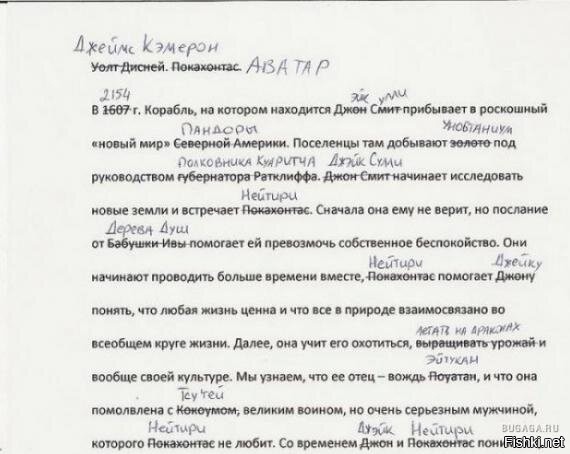 Джеймс Кэмерон
Уолт Дисней. Покахонтас. АВАТАР
2154 эйк улли
В 1607 г. Корабль, на котором находится Джон Смит прибывает в роскошный
ПАНДОРЫ УНОБТАНИУМ
«новый мир» Северной Америки. Поселенцы там добывают золото под
ПОЛКОВНИКА КУАРИТЧА ДЖЭЙК СУЛЛИ
руководством губернатора Ратклиффа. Джон Смит начинает исследовать
НЕЙТИРИ
новые земли и встречает Покахонтас. Сначала она ему не верит, но послание
Дерева Душ
от Бабушки Ивы помогает ей превозмочь собственное беспокойство. Они
Нейтири Джейку
начинают проводить больше времени вместе, Покахонтас помогает Джону
понять, что любая жизнь ценна и что все в природе взаимосвязано во
ЛЕТАТЬ НА ДРАКОНАХ
всеобщем круге жизни. Далее, она учит его охотиться, выращивать урожай и
ЭЙТУКАН
вообще своей культуре. Мы узнаем, что ее отец – вождь Поуатан, и что она
Тсу'тей
помолвлена с Кокоумом, великим воином, но очень серьезным мужчиной,
Нейтири Джэйк Нейтири
которого Покахонтас не любит. Со временем Джон и Покахонтас
BUGAGA.RU
Fishki.net